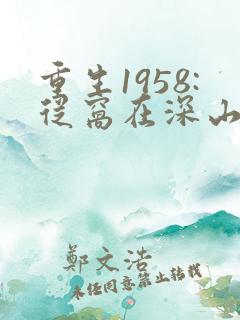 重生1958:
从窝在深山
鄭文浩
未经同意禁止转载